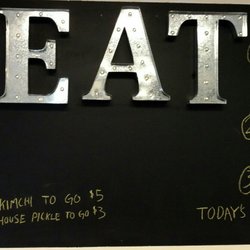 EAT
KIMCHI TO GO $5
HOUSE PICKLE TO GO $3
TODAY'S